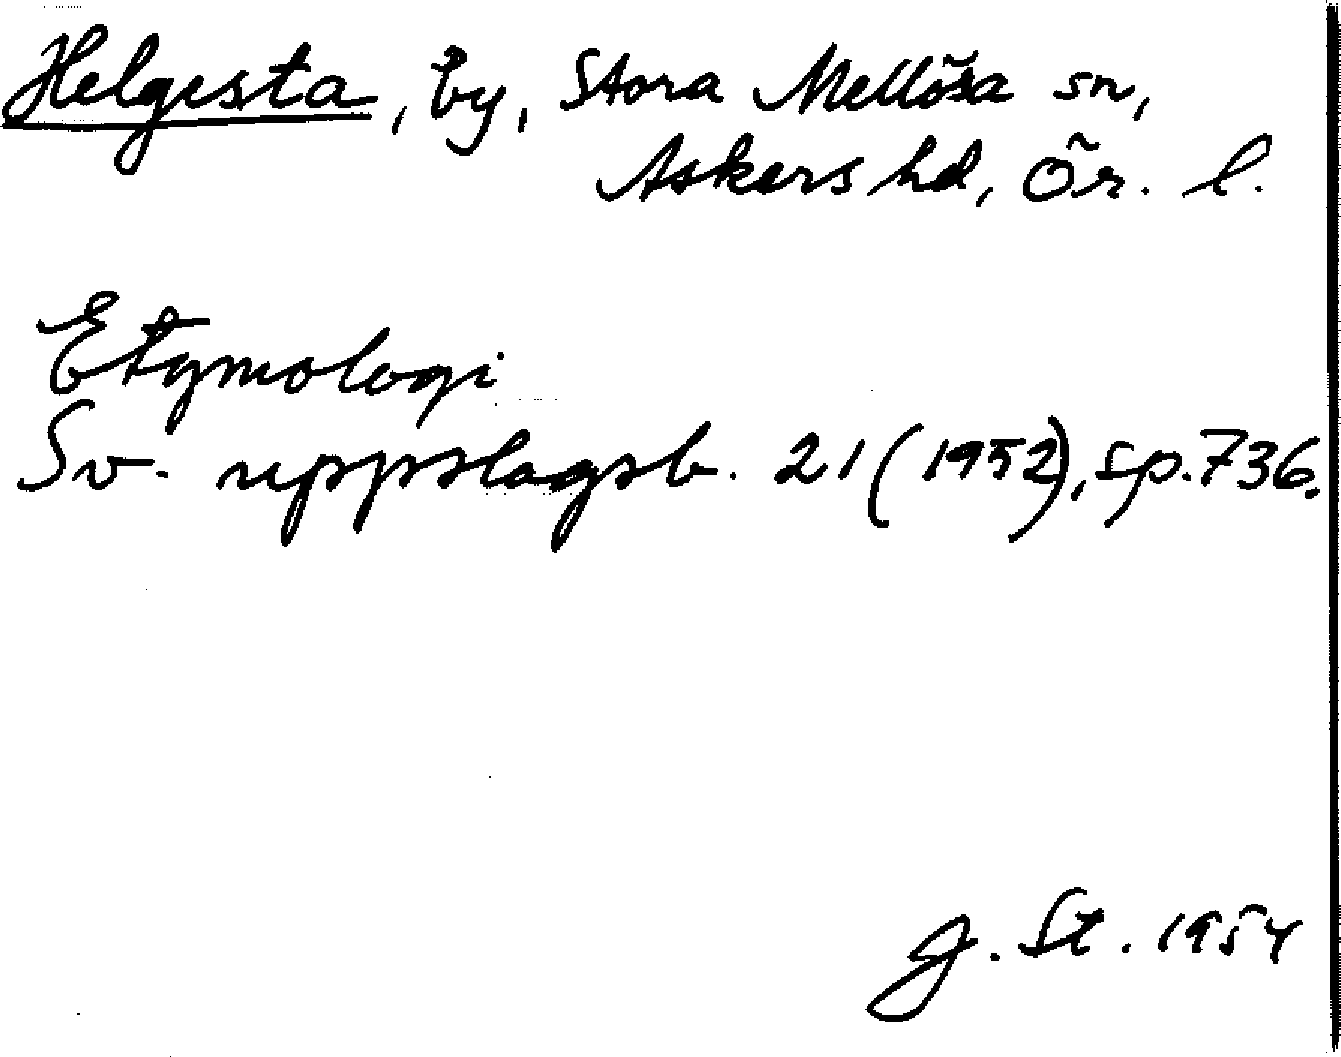 Helgesta, by, Stora Mellösa sn,
Askers hd, Ör. l.
Etymologi
Sv. uppslagsb. 21 (1952), sp. 736.
J. St. 1954